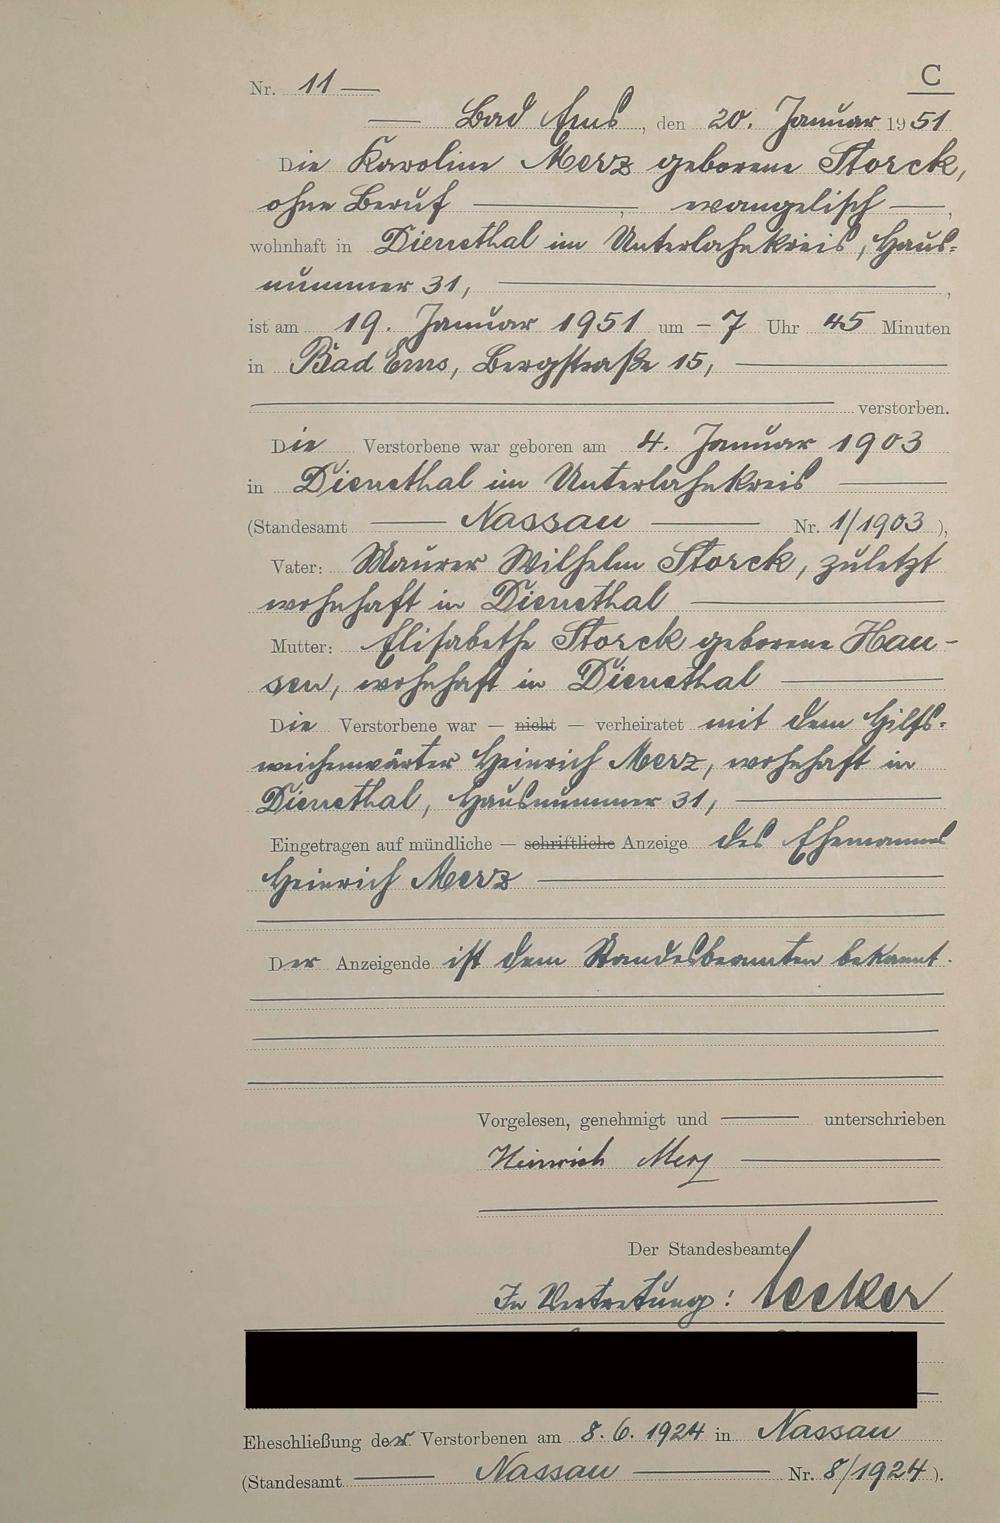 C
Nr. 11
Bad Ems, den 20. Januar 1951
Die Karoline Merz geborene Storck,
ohne Beruf, evangelisch,
wohnhaft in Dienethal im Unterlahnkreis, Haus-
nummer 31,
ist am 19. Januar 1951 um - 7 Uhr 45 Minuten
in Bad Ems, Bergstraße 15,
verstorben.
Die Verstorbene war geboren am 4. Januar 1903
in Dienethal im Unterlahnkreis
(Standesamt Nassau Nr. 1/1903),
Vater: Maurer Wilhelm Storck, zuletzt
wohnhaft in Dienethal
Mutter: Elisabethe Storck geborene Hau-
sen, wohnhaft in Dienethal
Die Verstorbene war — nicht — verheiratet mit dem Hilfs-
weichenwärter Heinrich Merz, wohnhaft in
Dienethal, Hausnummer 31,
Eingetragen auf mündliche — schriftliche Anzeige des Ehemannes
Heinrich Merz
Der Anzeigende ist dem Standesbeamten bekannt.
Vorgelesen, genehmigt und unterschrieben
Heinrich Merz
Der Standesbeamte
In Vertretung:
Eheschließung der Verstorbenen am 8. 6. 1924 in Nassau
(Standesamt Nassau Nr. 8/1924).